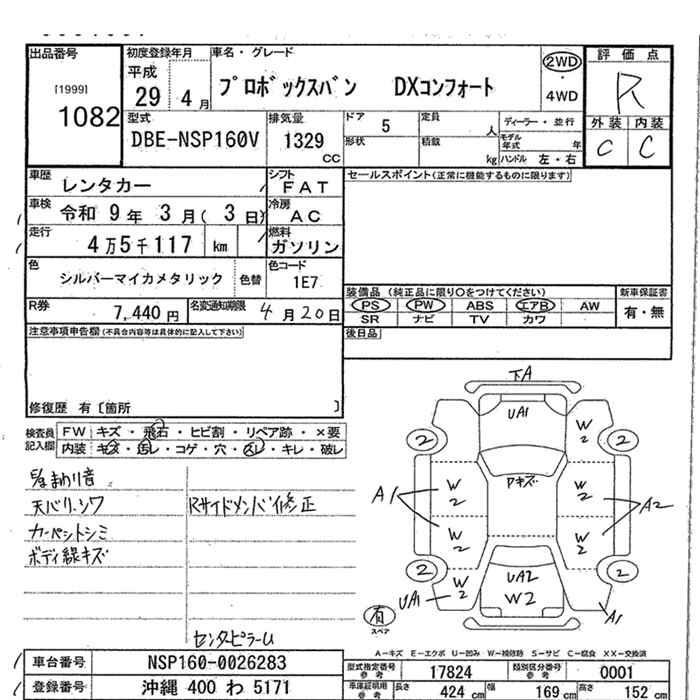 出品番号
[1999]
1082
初度登録年月
平成
29 4月
車名・グレード
プロボックスバン DXコンフォート
2WD
・
4WD
評価点
R
外装 内装
C C
型式
DBE-NSP160V
排気量
1329
CC
ドア 5
定員
人
形状
積載
kg
ディーラー・並行
モデル年式 年
ハンドル 左・右
車歴
レンタカー
シフト
FAT
車検
令和 9年 3月( 3日)
冷房
AC
走行
4万5千117 km
燃料
ガソリン
色
シルバーマイカメタリック
色替
色コード
1E7
R券
7,440 円
名変通知期限
4月20日
セールスポイント(正常に機能するものに限ります)
装備品 (純正品に限り○をつけてください)
PS PW ABS エアB AW
SR ナビ TV カワ
新車保証書
有・無
後日品
注意事項申告欄(不具合内容等は具体的に記入して下さい)
修復歴 有〔箇所 〕
検査員記入欄
FW キズ・飛石・ヒビ割・リペア跡・×要
内装 キズ・汚レ・コゲ・穴・スレ・キレ・破レ
天バリシワ
カーペットシミ
ボディ線キズ
Rサイドメンバイ修正
センタピラーU
下A
UA1
W2
2
2
Pキズ
A1
W2
W2
W2
W2
A2
2
2
UA2
W2
W2
UA1
A1
有
スペア
A-キズ E-エクボ U-凹み W-補修跡 S-サビ C-腐食 XX-交換済
車台番号
NSP160-0026283
登録番号
沖縄 400 わ 5171
型式指定番号
参考
17824
類別区分番号
参考
0001
車庫証明用
参考
長さ
424 cm
幅
169 cm
高さ
152 cm